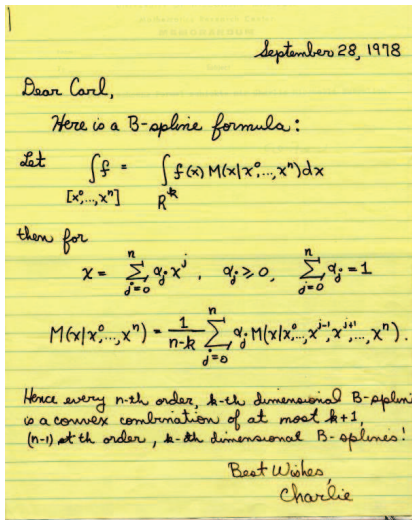 September 28, 1978
Dear Carl,
Here is a B-spline formula:
Let ∫f = ∫f(x) M(x|x⁰,...,xⁿ)dx
[x⁰,...,xⁿ] Rᵏ
then for
x = Σ αⱼ xʲ , αⱼ ≥ 0, Σ αⱼ = 1
M(x|x⁰,...,xⁿ) = 1/(n-k) Σ αⱼ M(x|x⁰,...,xʲ⁻¹,xʲ⁺¹,...,xⁿ).
Hence every n-th order, k-th dimensional B-splin
is a convex combination of at most k+1,
(n-1) th order, k-th dimensional B-splines!
Best Wishes,
Charlie